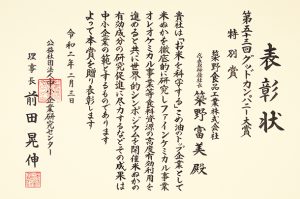 表彰状
第五十三回グッドカンパニー大賞
特別賞
築野食品工業株式会社
代表取締役社長 築野富美殿
貴社は「お米を科学する」こめ油のトップ企業として
米ぬかを徹底的に研究しファインケミカル事業
オレオケミカル事業等食料資源の高度有効利用を
進めると共に世界的シンポジウムを開催米ぬかの
有効成分の研究促進に尽力するなどその成果は
中小企業の範とするものであります
よって本賞を贈り表彰します
令和二年二月
公益社団法人中小企業研究センター
理事長 前田晃伸